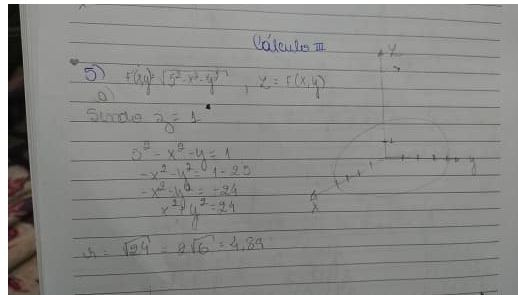 Cálculo III
5) F(x,y)=√5²-x²-y² , Z = F(x,y)
a)
Sendo z = 1
5² - x² - y = 1
-x² - y² = 1 - 25
-x² - y² = -24
x² + y² = 24
r = √24 = 2√6 = 4,89
Z
y
x